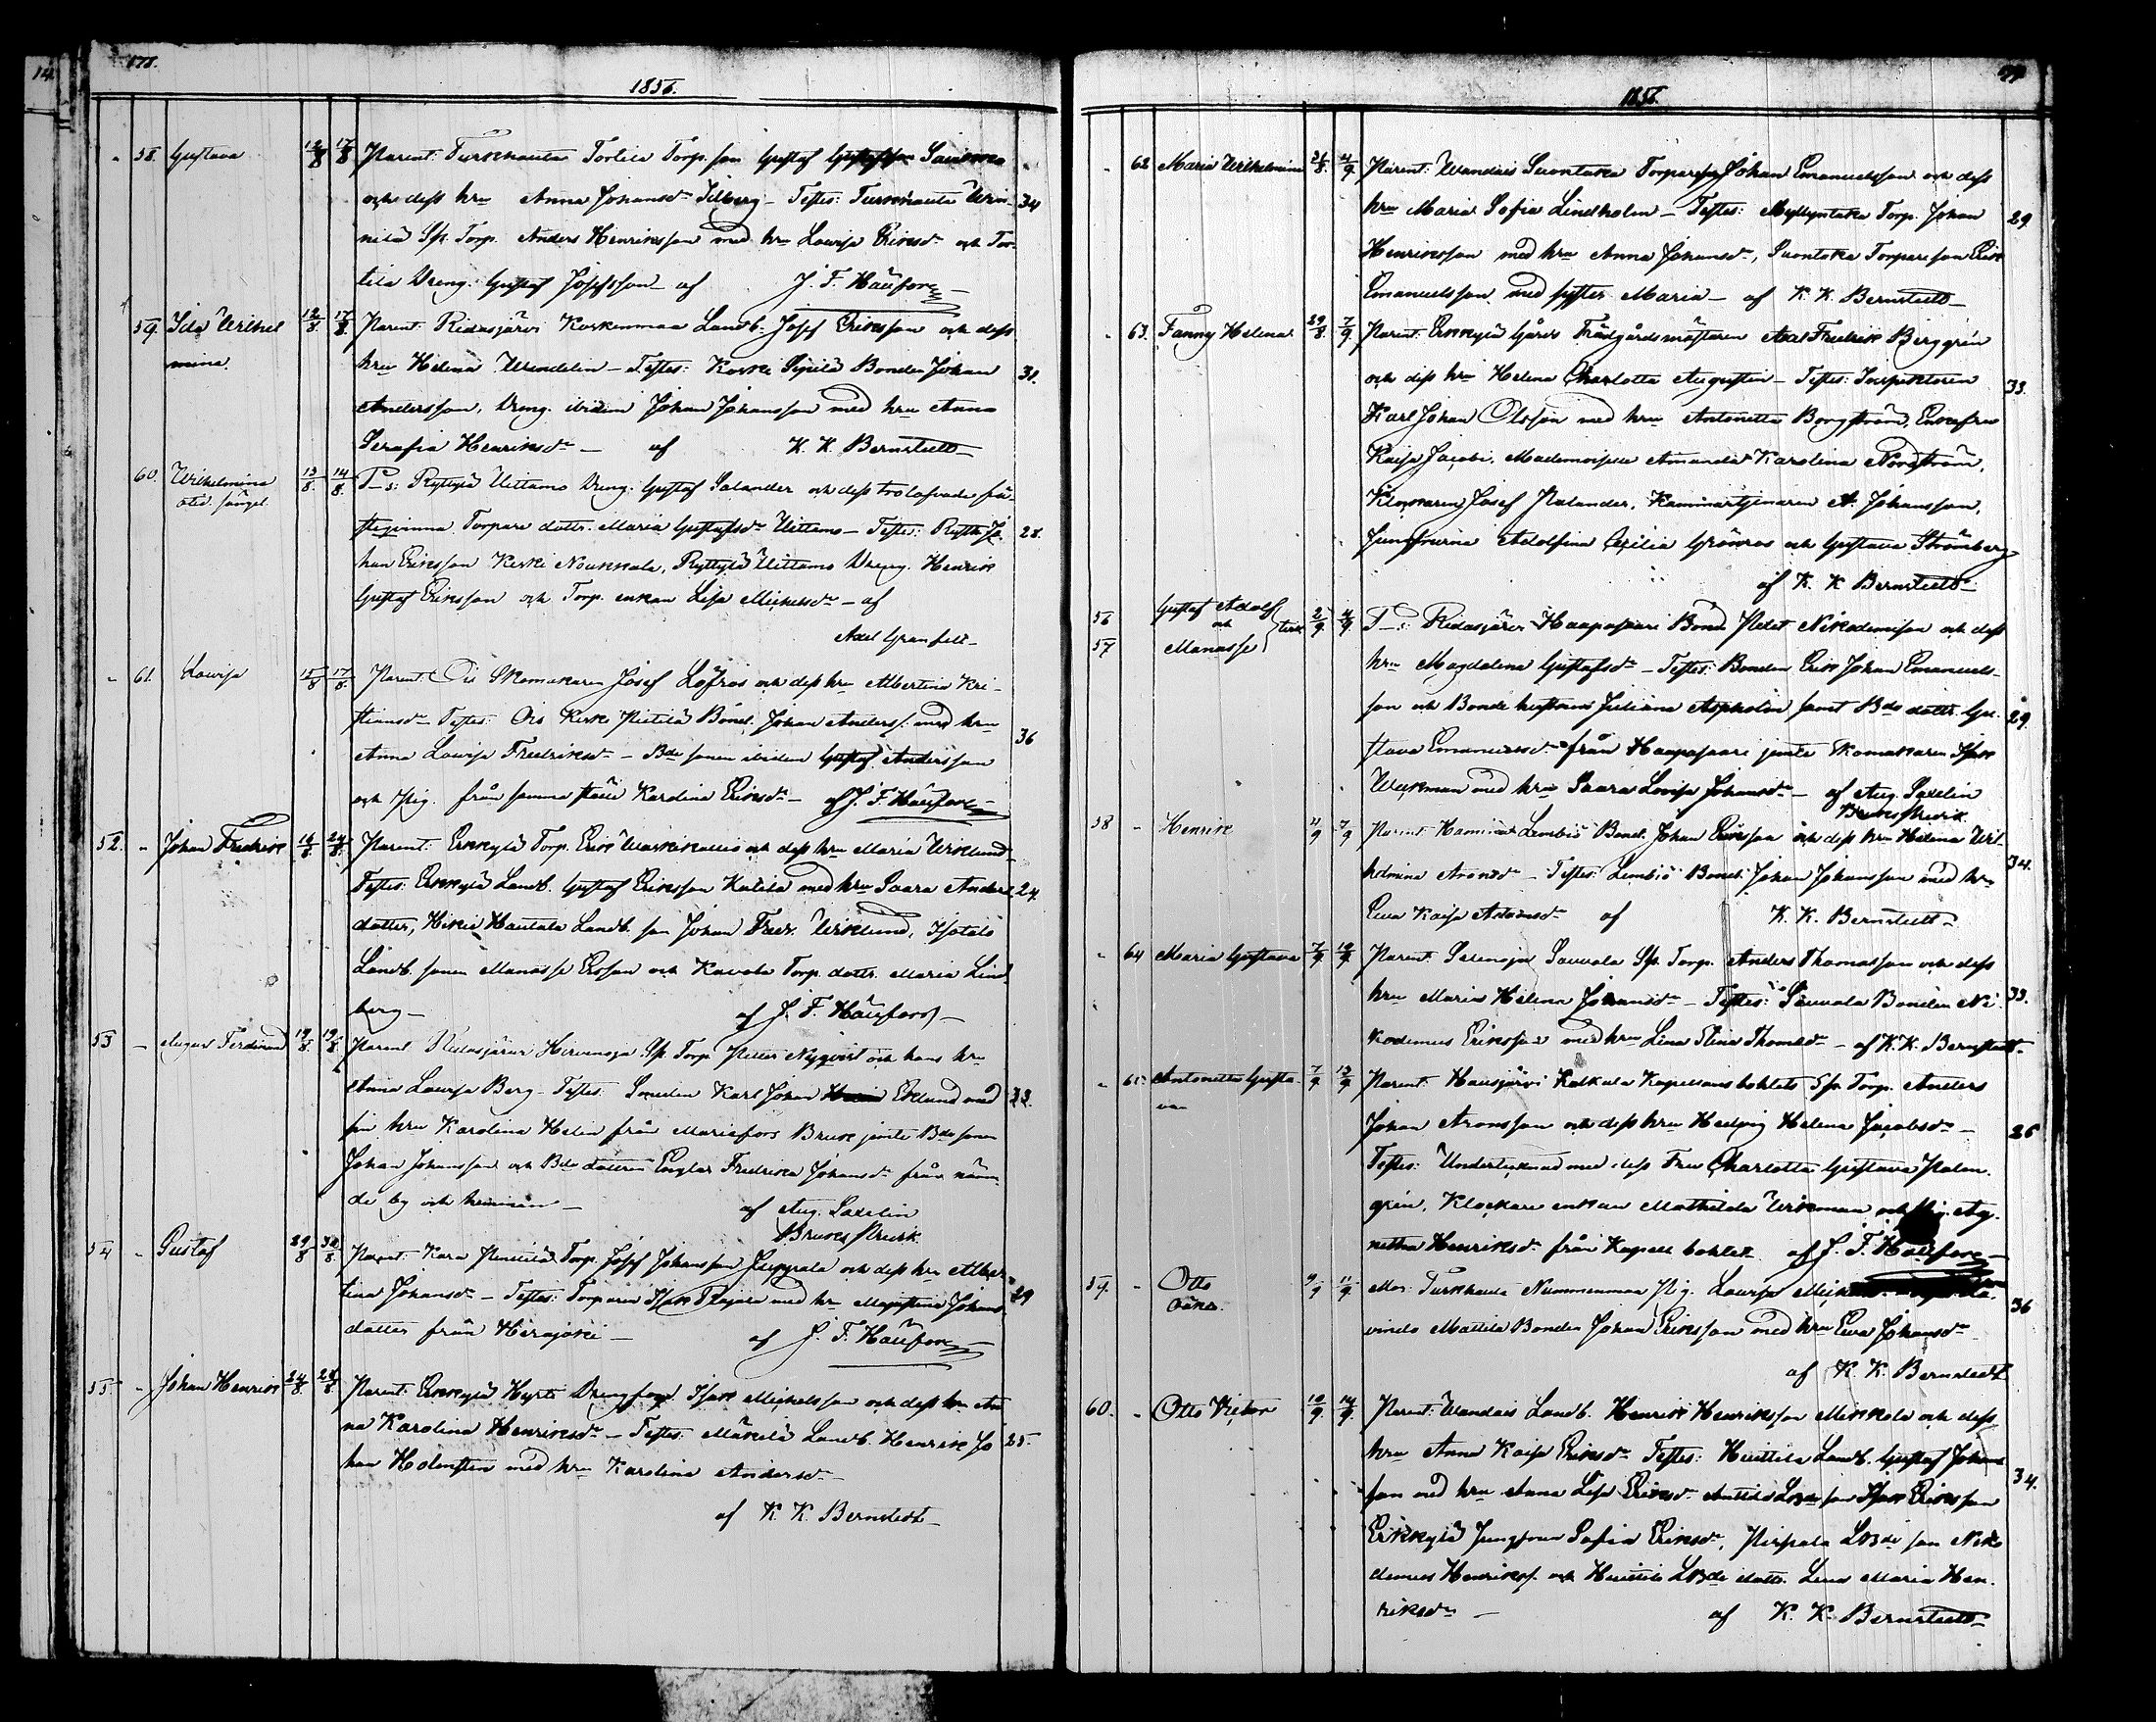 178.
1856.
58. Gustava 12/8 17/8 Parent: Turkhauta Tortila Torp. son Gustaf
och dess hru Anna Johansdr Silberg – Testes: Turkhauta 34
nilä Sp. Torp. Anders Henriksson med hru Lovisa Eriksdr och Tor-
tila Dreng. Gustaf Josefsson – af J. F. Häufors
59. Ida Wilhel 12/8. 17/8. Parent: Ridasjärvi Korkenmaa Landb: Josef Eriksson och dess
mina hru Helena Wendelin – Testes: Koski Seppilä Bonden Johan 31.
Andersson, Dreng. ibidem Johan Johansson med hru Anna
Serafia Henriksdr – af K. K. Bernstedt
60. Wilhelmina 13/8. 14/8. P–s: Ryttylä Uittamo Dreng. Gustaf Salander och dess trolofvade fä-
oäd. sängel. steqvinna Torpare dottr. Maria Gustafsdr Uittamo – Testes: Rystth. Jo- 28.
han Eriksson Kerki Noukkala, Ryttylä Uittamo Dreng. Henrik
Gustaf Eriksson och Torp. enkan Lisa Michelsdr – af
Axel Granfelt
61. Lovisa 15/8 17/8. Parent: Ois Skomakaren Josef Löfros och dess hru Albertina Kri-
stiansdr – Testes: Ois Kerki Pietilä Bond. Johan Anders. med hru 36
Anna Lovisa Fredriksdr – Bde sonen ibidem Gustaf Andersson
och Pig. från samma ställe Karolina Eriksdr – af J. F. Häufors
52. Johan Fredrik 16/8. 24/8. Parent: Erkkylä Torp. Erik Waskikallio och dess hru Maria Wiklund
Testes: Erkkylä Landb. Gustaf Eriksson Kutila med hru Saara Anders 24.
dotter, Hikiä Hautala Landb. son Johan Fredr. Wiklund, Isotalo
Landb. sonen Manasse Ersson och Kavola Torp. dottr. Maria Lind-
berg – af J. F. Häufors
53 August Ferdinand 19/8. 19/8. Parent: Ridasjärvi Hirvenoja Sp. Torp. Petter Nyqvist och hans hru
Anna Lovisa Berg – Testes: Smeden Karl Johan Eklund med 33.
sin hru Karolina Helin från Mariefors Bruk jemte Bde sonen
Johan Johansson och Bde dottren Engla Fredrika Johansdr från näm-
de by och hemman – af Aug. Saxelin
Bruks Predik.
54 Gustaf 29/8 30/8. Parent: Kara Penttilä Torp. Josef Johansson Leppala och dess hru Alber-
tina Johansdr – Testes: Torparen Isak Plajari med hru Majastina Johans- 29
dotter från Herajoki – af J. F. Häufors
55 Johan Henrik 24/8. 28/8. Parent: Erkkylä Hyrti Drengfogd Isak Michelsson och dess hru An-
na Karolina Henriksdr – Testes: Mäkilä Landb. Henrik Jo- 25.
han Holmsten med hru Karolina Andersdr –
af K K. Bernstedt
1856.
62 Maria Wilhelmina 31/8. 4/9. Parent: Wandais Suontaka Torpareson Johan Emanuelsson och dess
hru Maria Sofia Lindholm – Testes: Myllyntaka Torp. Johan 29.
Henriksson med hru Anna Johansdr, Suontaka Torpareson Erik
Emanuelsson med syster Maria – af K. K. Bernstedt
63. Fanny Helena 29/8. 7/9. Parent: Erkkylä Gårds Trädgårdsmästaren Axel Fredrik Berggrén
och dess hru Helena Charlotta Augustin – Testes: Inspektoren 33.
Karl Johan Olsson med hru Antonetta Borgström, Enkefru
Kaisa Jacobi, Mademoiselle Amanda Karolina Nordström,
Klockaren Josef Palander, Kammartjenaren A. Johansson,
Jungfrurna Adolfina Cecilia Grönros och Gustava Strömberg
af K. K. Bernstedt
56 Gustaf Adolf 2/9. 4/9. P–s: Ridasjärvi Haapasaari Bond. Petter Nikodemison och dess
och
57 Manasse hru Magdalena Gustafsdr – Testes: Bonden Erik Johan Emanuels-
son och Bonde hustrun Juliana Aspholm samt Bde dottr. Gu- 29.
stava Emanuelsdr från Haapasaari jemte Skomakaren Isak
Weckman med hru Saara Lovisa Johansdr – af Aug. Saxelin
Bruks Predik.
58 Henrik 4/9 7/9 Parent: Lembiö Bond. Johan Eriksson och dess hru Helena Wil-
helmina Aronsdr – Testes: Lembiö Bond. Johan Johansson med hru 34.
Eva Kaisa Adamsdr af K. K. Bernstedt
64 Maria Gustava 7/9 10/9 Parent: Salenoja Sauvala Sp. Torp. Anders Thomasson och dess
hru Maria Helena Johansdr – Testes: Sauvala Bonden Ni- 33.
kodemus Eriksson med hru Lena Stina Thomasdr – af K. K. Bernstedt
65 Antonetta Gusta- 7/9. 13/9 Parent: Hausjärvi Kalkula Kapellansbohlets Sp. Torp. Anders
va Johan Aronsson och dess hru Hedvig Helena Jacobsdr – 26
Testes: Undertecknad med dess Fru Charlotta Gustava Palm-
grén, Klockare enkan Mathilda Wikman och Pig. Ag-
netha Henriksdr från Kapell bohlet af J. F. Häufors
59. Otto 9/9 11/9 Mor: Turkhauta Nummenmaa Pig. Lovisa
oäkta. vindo Mattila Bonden Johan Eriksson med hru Eva Johansdr 36
af K. K. Bernstedt
60. Otto Viktor 10/9. 14/9. Parent: Wandais Landb. Henrik Henriksson Mikkola och dess
hru Anna Kaisa Eriksdr Testes: Huittila Landb. Gustaf Johans-
son med hru Anna Lisa Eriksdr Anttila Lbde son Isak Eriksson 34.
Erkkylä Jungfrun Sofia Eriksdr, Pirpala Lbde son Niko-
demus Henriks. och Huittila Lbde dottr. Lena Maria Hen-
riksdr – af K. K. Bernstedt